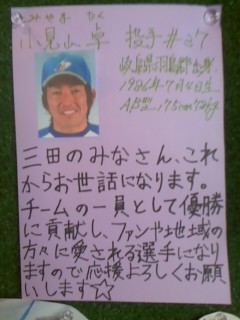 こみやま たく
小見山 卓 投手 #27
岐阜県羽島郡出身
1986年7月4日生
A型 175cm 72kg
三田のみなさん、これ
からお世話になります。
チームの一員として優勝
に貢献し、ファンや地域の
方々に愛される選手になり
ますので応援よろしくお願
いします☆